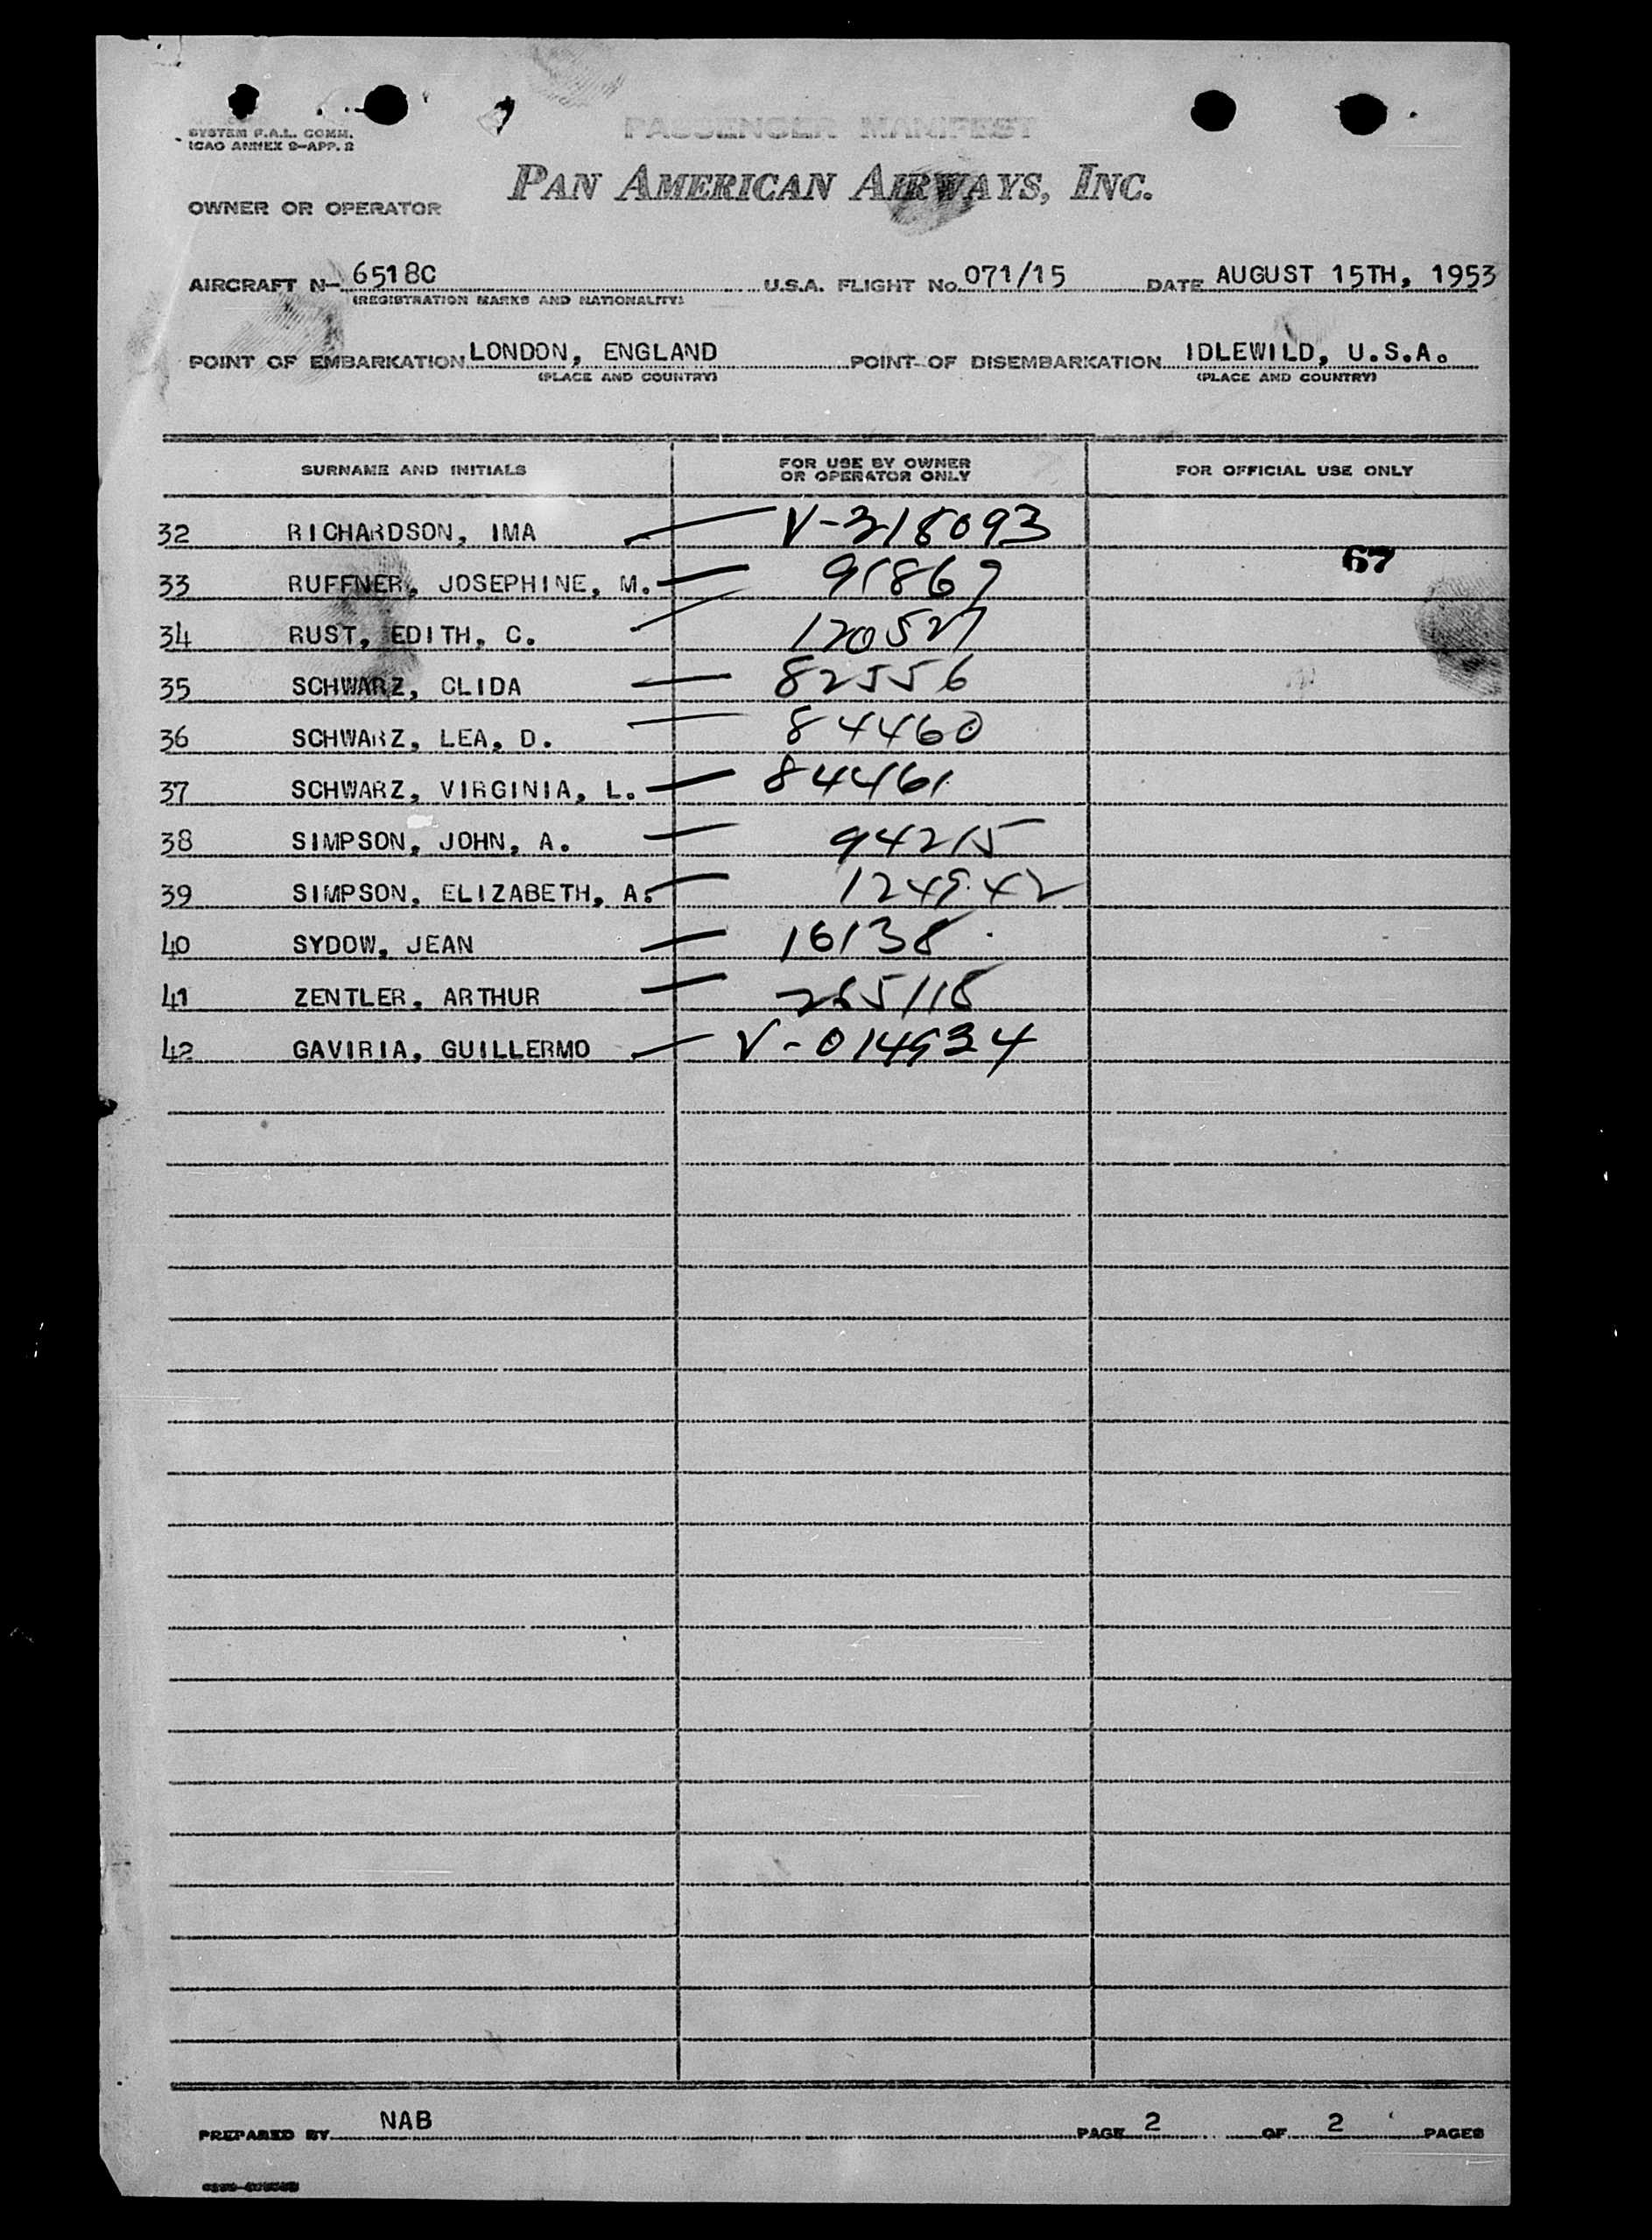 SYSTEM F.A.L. COMM.
ICAO ANNEX 9-APP. 2
PASSENGER MANIFEST
PAN AMERICAN AIRWAYS, INC.
OWNER OR OPERATOR
AIRCRAFT N- 6518C U.S.A. FLIGHT No. 071/15 DATE AUGUST 15TH, 1953
(REGISTRATION MARKS AND NATIONALITY)
POINT OF EMBARKATION LONDON, ENGLAND POINT OF DISEMBARKATION IDLEWILD, U.S.A.
(PLACE AND COUNTRY) (PLACE AND COUNTRY)
SURNAME AND INITIALS FOR USE BY OWNER OR OPERATOR ONLY FOR OFFICIAL USE ONLY
32 RICHARDSON, IMA V-318093
67
33 RUFFNER, JOSEPHINE, M. 91867
34 RUST, EDITH, C. 120527
35 SCHWARZ, CLIDA 82556
36 SCHWARZ, LEA, D. 84460
37 SCHWARZ, VIRGINIA, L. 84461
38 SIMPSON, JOHN, A. 94215
39 SIMPSON, ELIZABETH, A. 124942
40 SYDOW, JEAN 16138
41 ZENTLER, ARTHUR 265118
42 GAVIRIA, GUILLERMO V-014934
PREPARED BY NAB PAGE 2 OF 2 PAGES